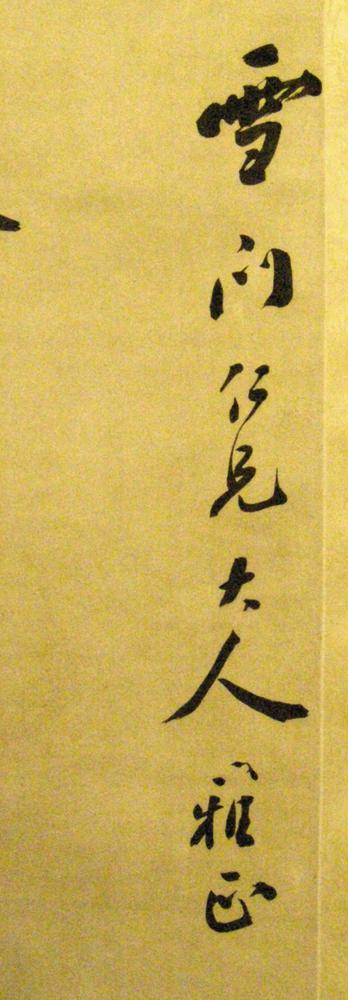 雪門仁兄大人雅正